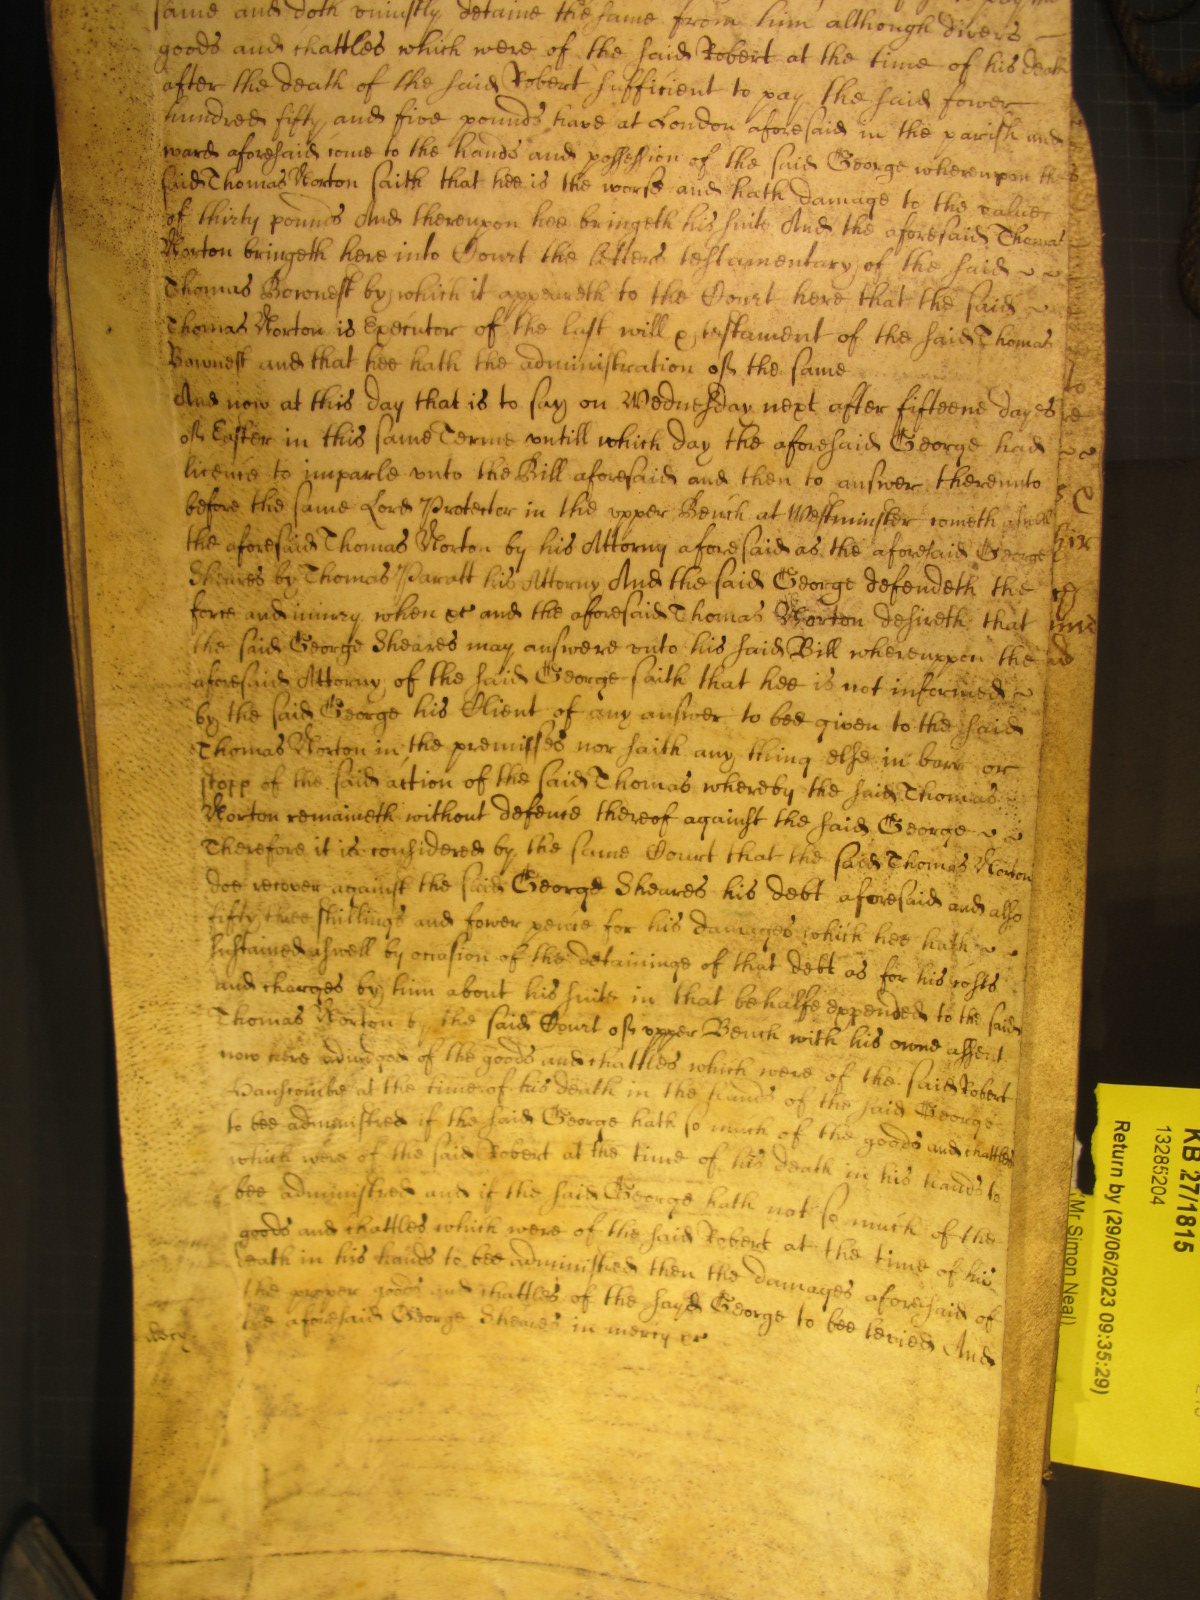 same and doth uniustly detaine the same from him although divers
goods and chattles which were of the said Robert at the time of his death
after the death of the said Robert sufficient to pay the said fower
hundred fifty and five pounds have at London aforesaid in the parish and
ward aforesaid come to the hands and possession of the said George whereupon the
said Thomas Norton saith that hee is the worse and hath damage to the value
of thirty pounds And thereupon hee bringeth his suite And the aforesaid Thomas
Norton bringeth here into Court the letters testamentary of the said
Thomas Bownest by which it appeareth to the Court here that the said
Thomas Norton is Executor of the last will & testament of the said Thomas
Bownest and that hee hath the administration of the same
And now at this day that is to say on Wednesday next after fifteene dayes
of Easter in this same Terme untill which day the aforesaid George had
licence to imparle unto the Bill aforesaid and then to answer thereunto
before the same Lord Protector in the upper Bench at Westminster cometh aswell
the aforesaid Thomas Norton by his Attorny aforesaid as the aforesaid George
Sheares by Thomas Paratt his Attorny And the said George defendeth the
force and iniury when &c and the aforesaid Thomas Norton desireth that
the said George Sheares may answere unto his said Bill whereuppon the
aforesaid Attorny of the said George saith that hee is not informed
by the said George his Client of any answer to bee given to the said
Thomas Norton in the premisses nor saith any thing else in barr or
stopp of the said action of the said Thomas whereby the said Thomas
Norton remaineth without defence thereof against the said George
Therefore it is considered by the same Court that the said Thomas Norton
doe recover against the said George Sheares his debt aforesaid and also
fifty three shillings and fower pence for his damages which hee hath
sustained aswell by occasion of the detaininge of that debt as for his costs
and charges by him about his suite in that behalfe expended to the said
Thomas Norton by the said Court of upper Bench with his owne assent
now here adiudged of the goods and chattles which were of the said Robert
Hanscombe at the time of his death in the hands of the said George
to bee administred if the said George hath so much of the goods and chattles
which were of the said Robert at the time of his death in his hands to
bee administred and if the said George hath not so much of the
goods and chattles which were of the said Robert at the time of his
death in his hands to bee administred then the damages aforesaid of
the proper goods and chattles of the sayd George to bee levied And
the aforesaid George Sheares in mercy &c
KB 27/1815
13285204
Return by (29/06/2023 09:35:29)
Mr Simon Neal)